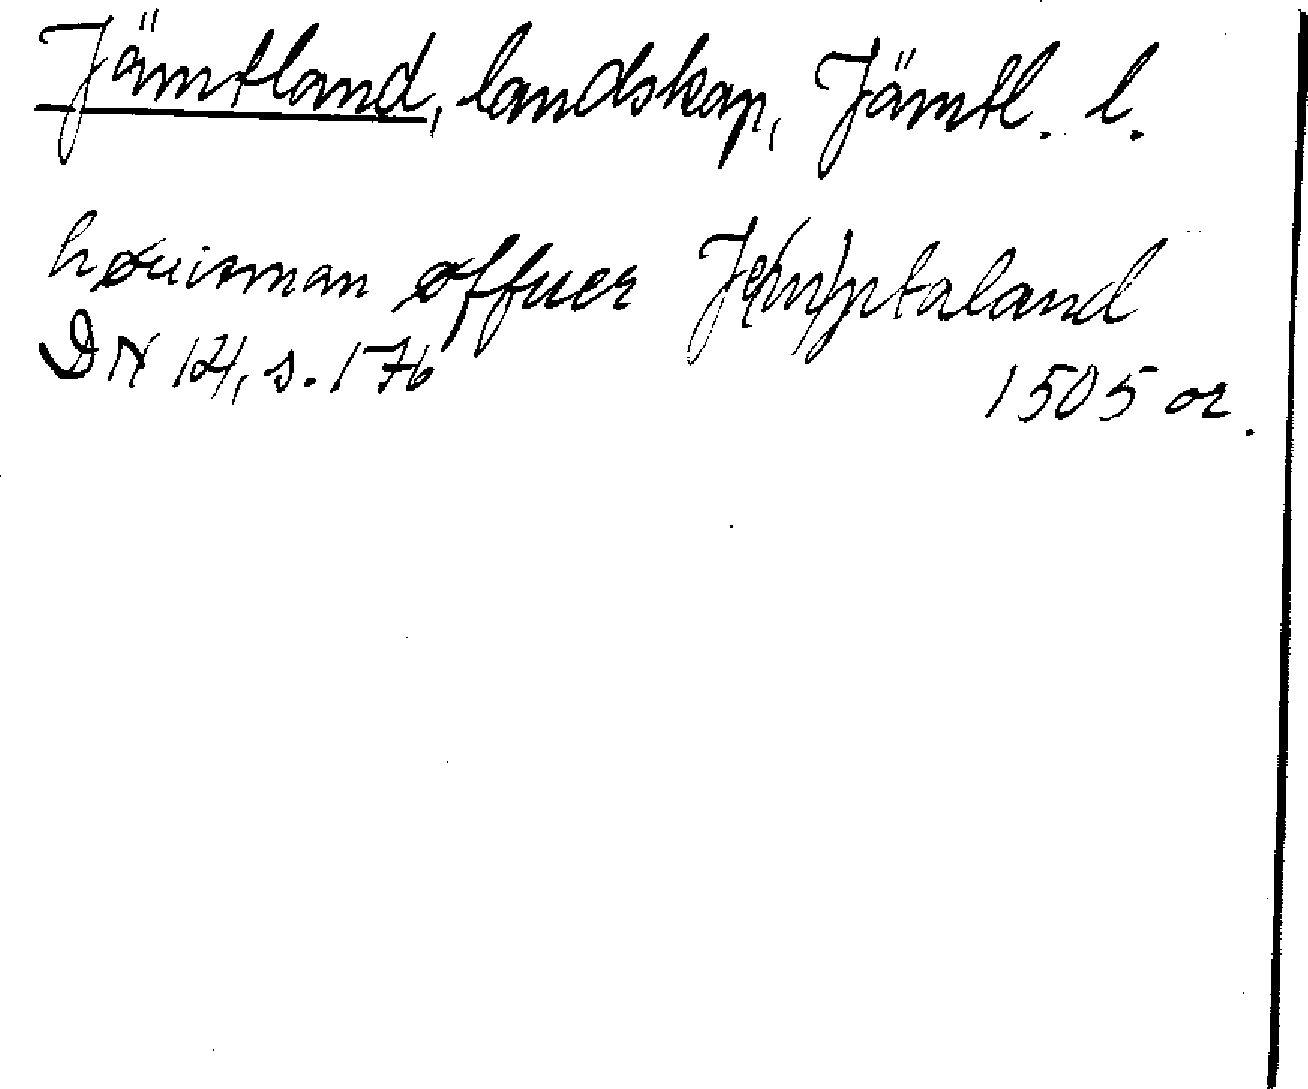 Jämtland, landskap, Jämtl. l.
høuisman øffuer Je(m)ptaland
DN 14, s. 176
1505 or.